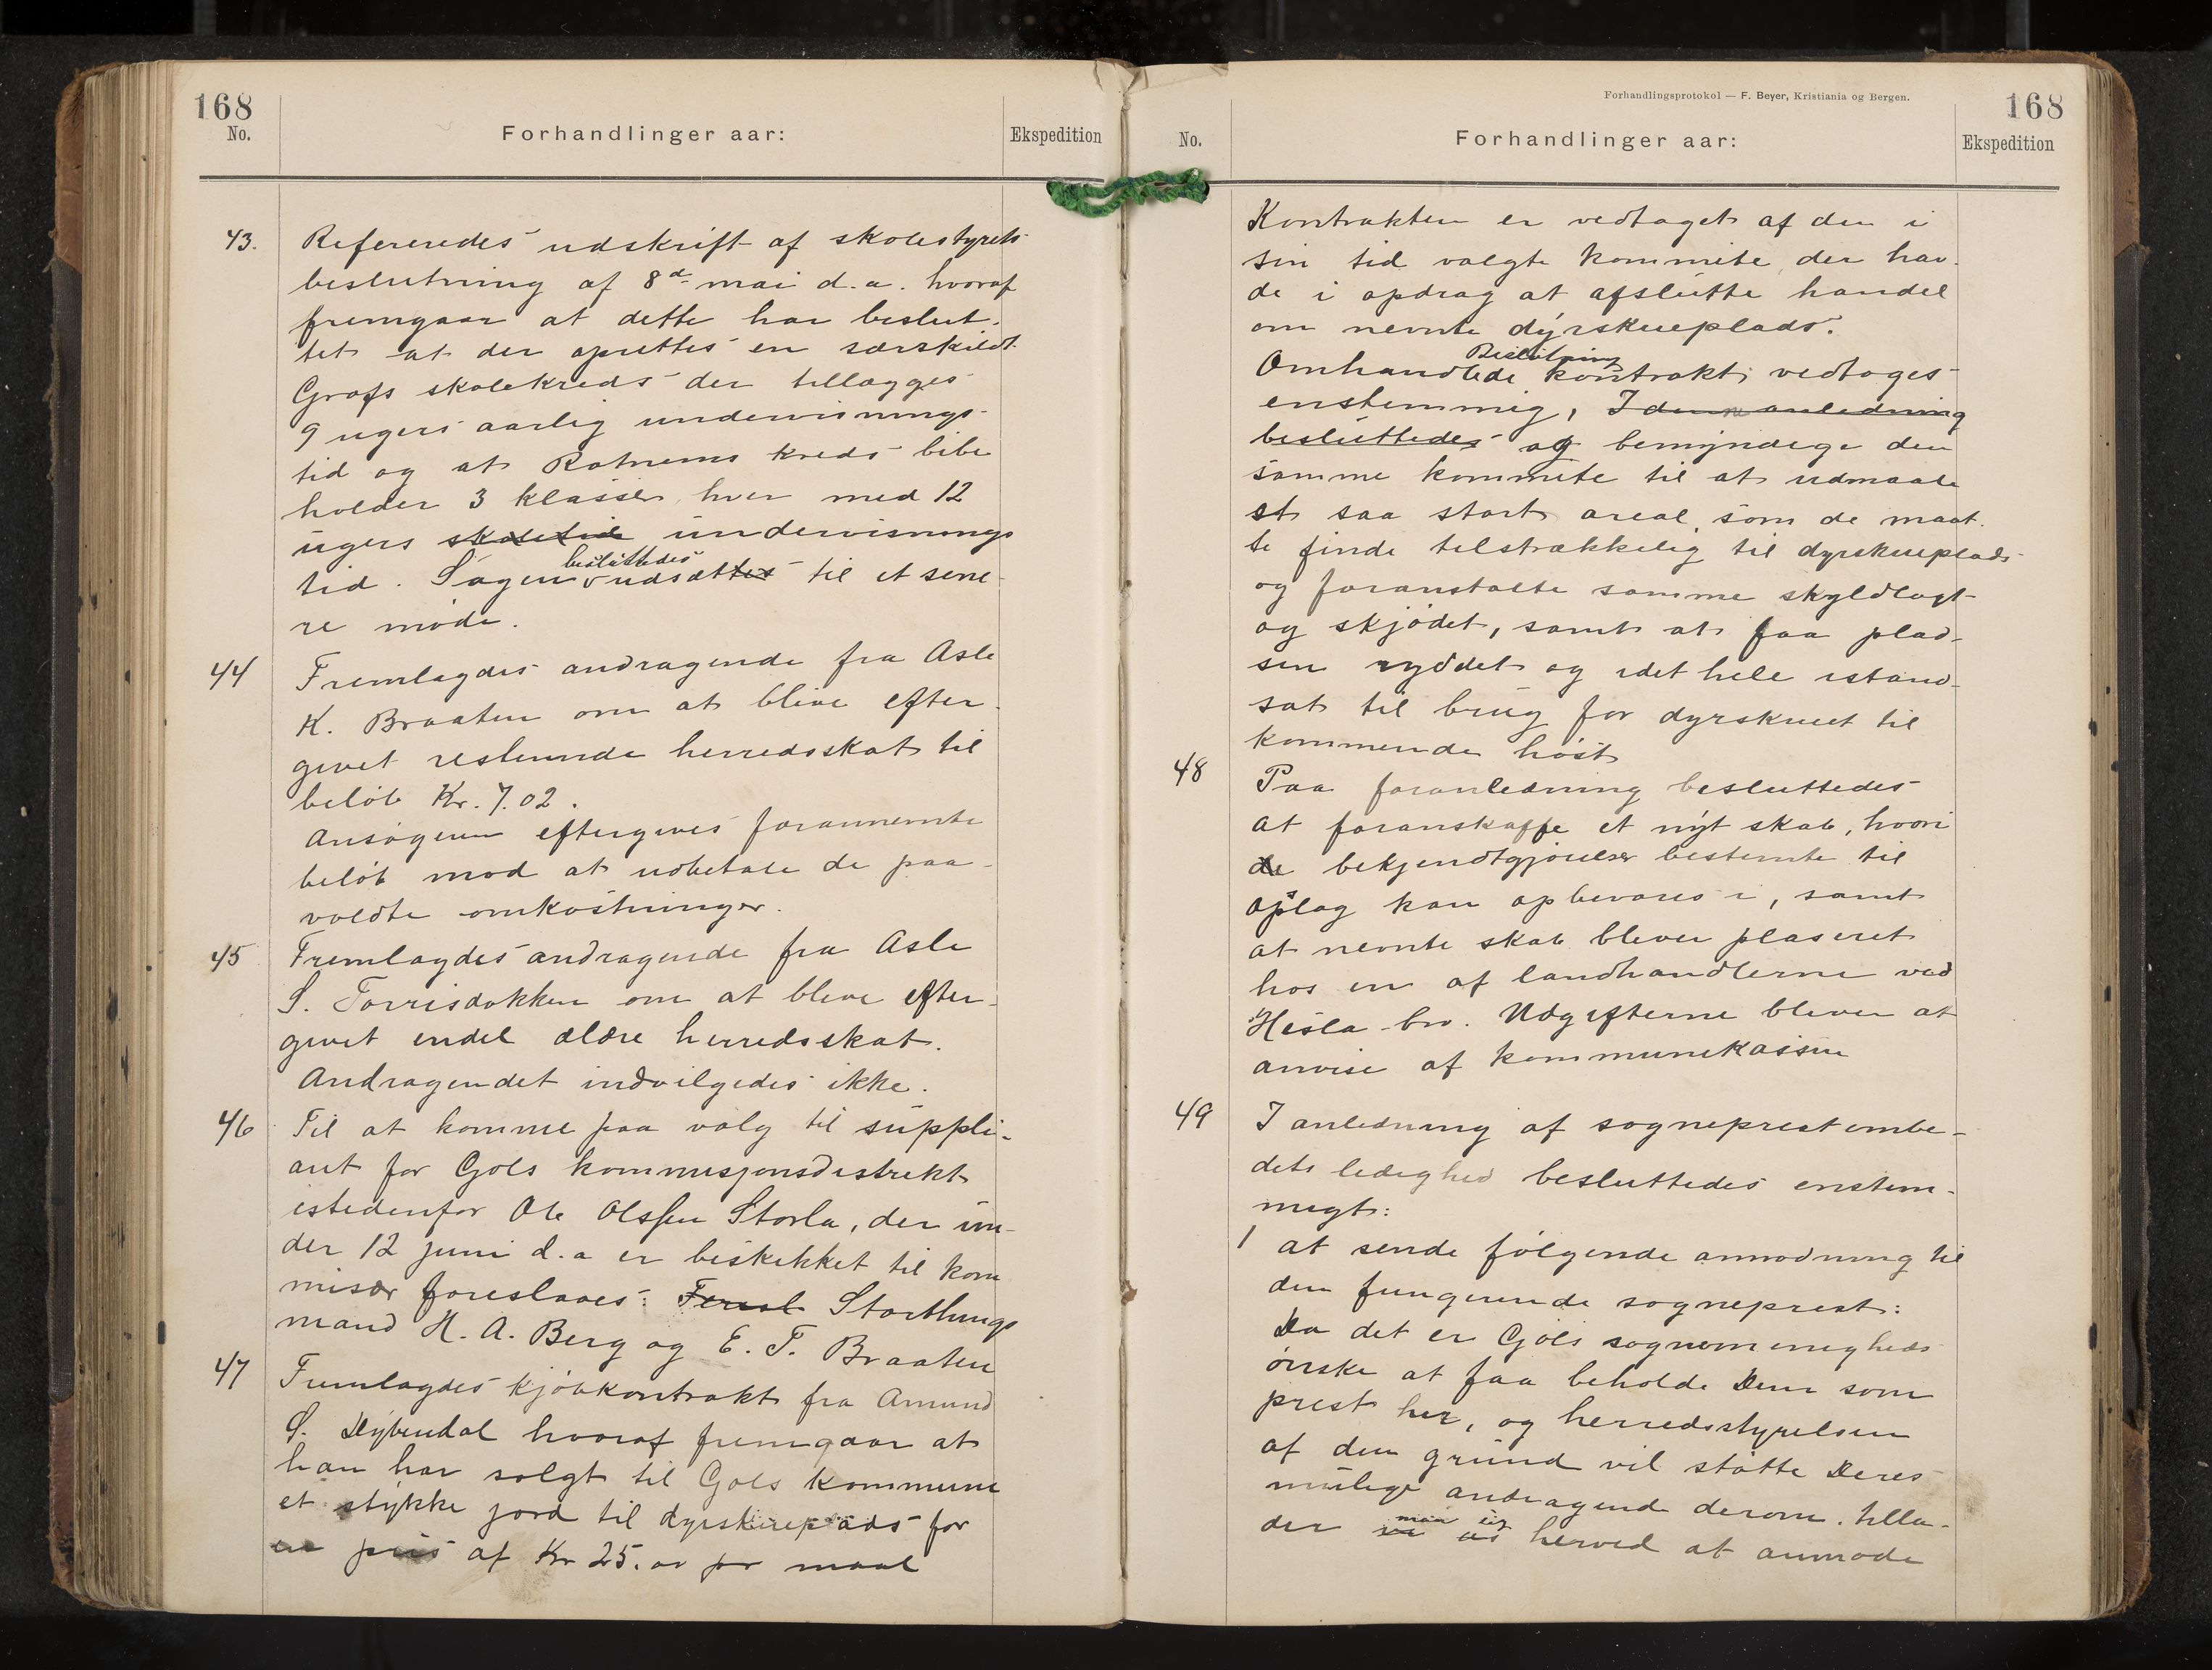 168
No.
Forhandlinger aar:
Ekspedition
43. Refereredes udskrift af skolestyrets
beslutning af 8de mai d.a. hvoraf
fremgaar at dette har beslut-
tet at der oprettes en særskildt
Grøfs skolekreds der tillægges
9 ugers aarlig undervisnings-
tid og at Rotnems kreds bibe
holder 3 klasser hver med 12
ugers skoletid undervisnings
tid. Sagen besluttedes udsættes til et sene-
re møde.
44 Fremlagdes andragende fra Asle
K. Braaten om at blive efter-
givet resterende herredsskat til
beløb Kr. 7.02.
Ansøgeren eftergives forannemte
beløb mod at udbetale de paa-
voldte omkostninger.
45 Fremlagdes andragende fra Asle
S. Torrisdokken om at blive efter-
givet endel ældre herredsskat.
Andragendet indvilgedes ikke.
46 Til at komme paa valg til suppli-
ant for Gols kommisjonsdistrikt
istedenfor Ole Olssen Storla, der un-
der 12 juni d.a er beskikket til kom
misær foreslaaes: Storthings
mand H. A. Berg og E. T. Braaten
47 Fremlagdes kjøbkontrakt fra Amund
S. Dybendal hvoraf fremgaar at
han har solgt til Gols kommune
et stykke jord til dyrskueplads for
en pris af Kr 25.00 pr maal
Forhandlingsprotokol — F. Beyer, Kristiania og Bergen.
168
No.
Forhandlinger aar:
Ekspedition
Kontrakten er vedtaget af den i
sin tid valgte kommite der hav-
de i opdrag at afslutte handel
om nevnte dyrskueplads.
Beslutning
Omhandlede kontrakt vedtages
enstemmig, I denne anledning
besluttedes og bemyndige den
samme kommite til at udmaale
et saa stort areal, som de maat-
te finde tilstrækkelig til dyrskueplads
og foranstalte samme skyldlagt
og skjødet, samt at faa plad-
sen ryddet og idet hele istand-
sat til brug for dyrskuet til
kommende høst
48 Paa foranledning besluttedes
at foranskaffe et nyt skab, hvori
de bekjendtgjørelser bestemte til
opslag kan opbevares i, samt
at nevnte skab bliver plaseret
hos en af landhandlerne ved
Hesla-bro. Udgifterne bliver at
anvise af kommunekassen
49 I anledning af sogneprestembe-
dets ledighed besluttedes enstem-
migt:
1 at sende følgende anmodning til
den fungerende sogneprest:
Da det er Gols sognemenigheds
ønske at faa beholde Dem som
prest her, og herredsstyrelsen
af den grund vil støtte Deres
mulige andragende derom, tilla-
maa sig
der vi os herved at anmode